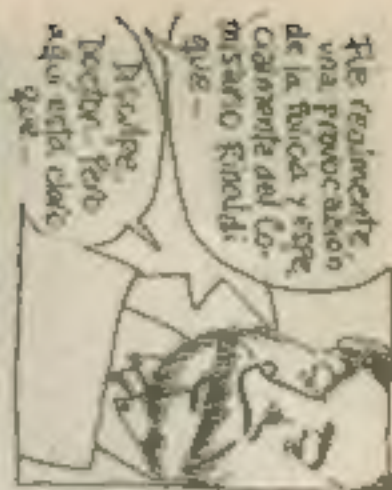 Fue realmente
una provocación
de la Policía y espe
cialmente del Co-
misario Rinaldi
que -
Disculpe,
Doctor. Pero
aquí está claro
que -